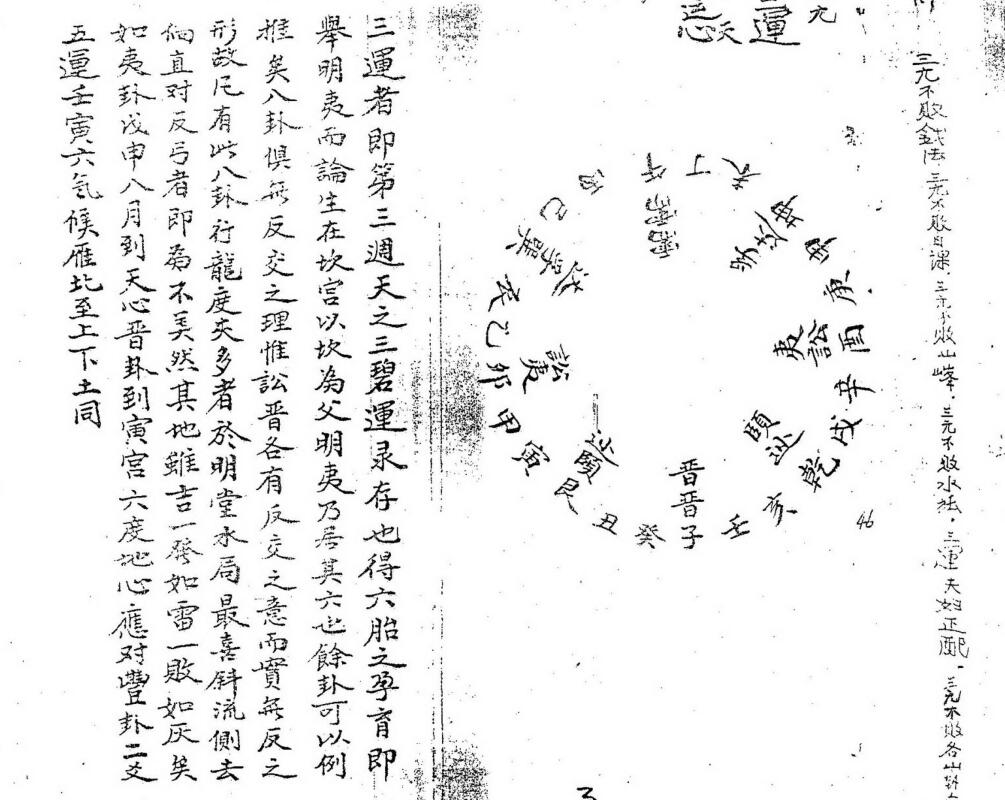 三元不敗錢法三元不敗日課三元不敗山峰三元不敗水法三運夫婦正配三元不敗各山
三運
元
天
午丁未坤申庚酉辛戌乾亥壬子癸丑艮寅甲卯乙辰巽巳丙
需需
訟夷
頤
晋晋
頤
訟夷
46
三運者即第三週天之三碧運录存也得六胎之孕育即
舉明夷而論生在坎宫以坎為父明夷乃居其六也餘卦可以例
推矣八卦俱無反交之理惟訟晋各有反交之意而實無反之
形故凡有此八卦行龍度夾多者於明堂水局最喜斜流側去
個直对反弓者即為不美然其地雖吉一發如雷一敗如灰矣
如夷卦戊申八月到天心晋卦到寅宫六度地心應对豐卦二爻
五運壬寅六氣候雁北至上下土同
3